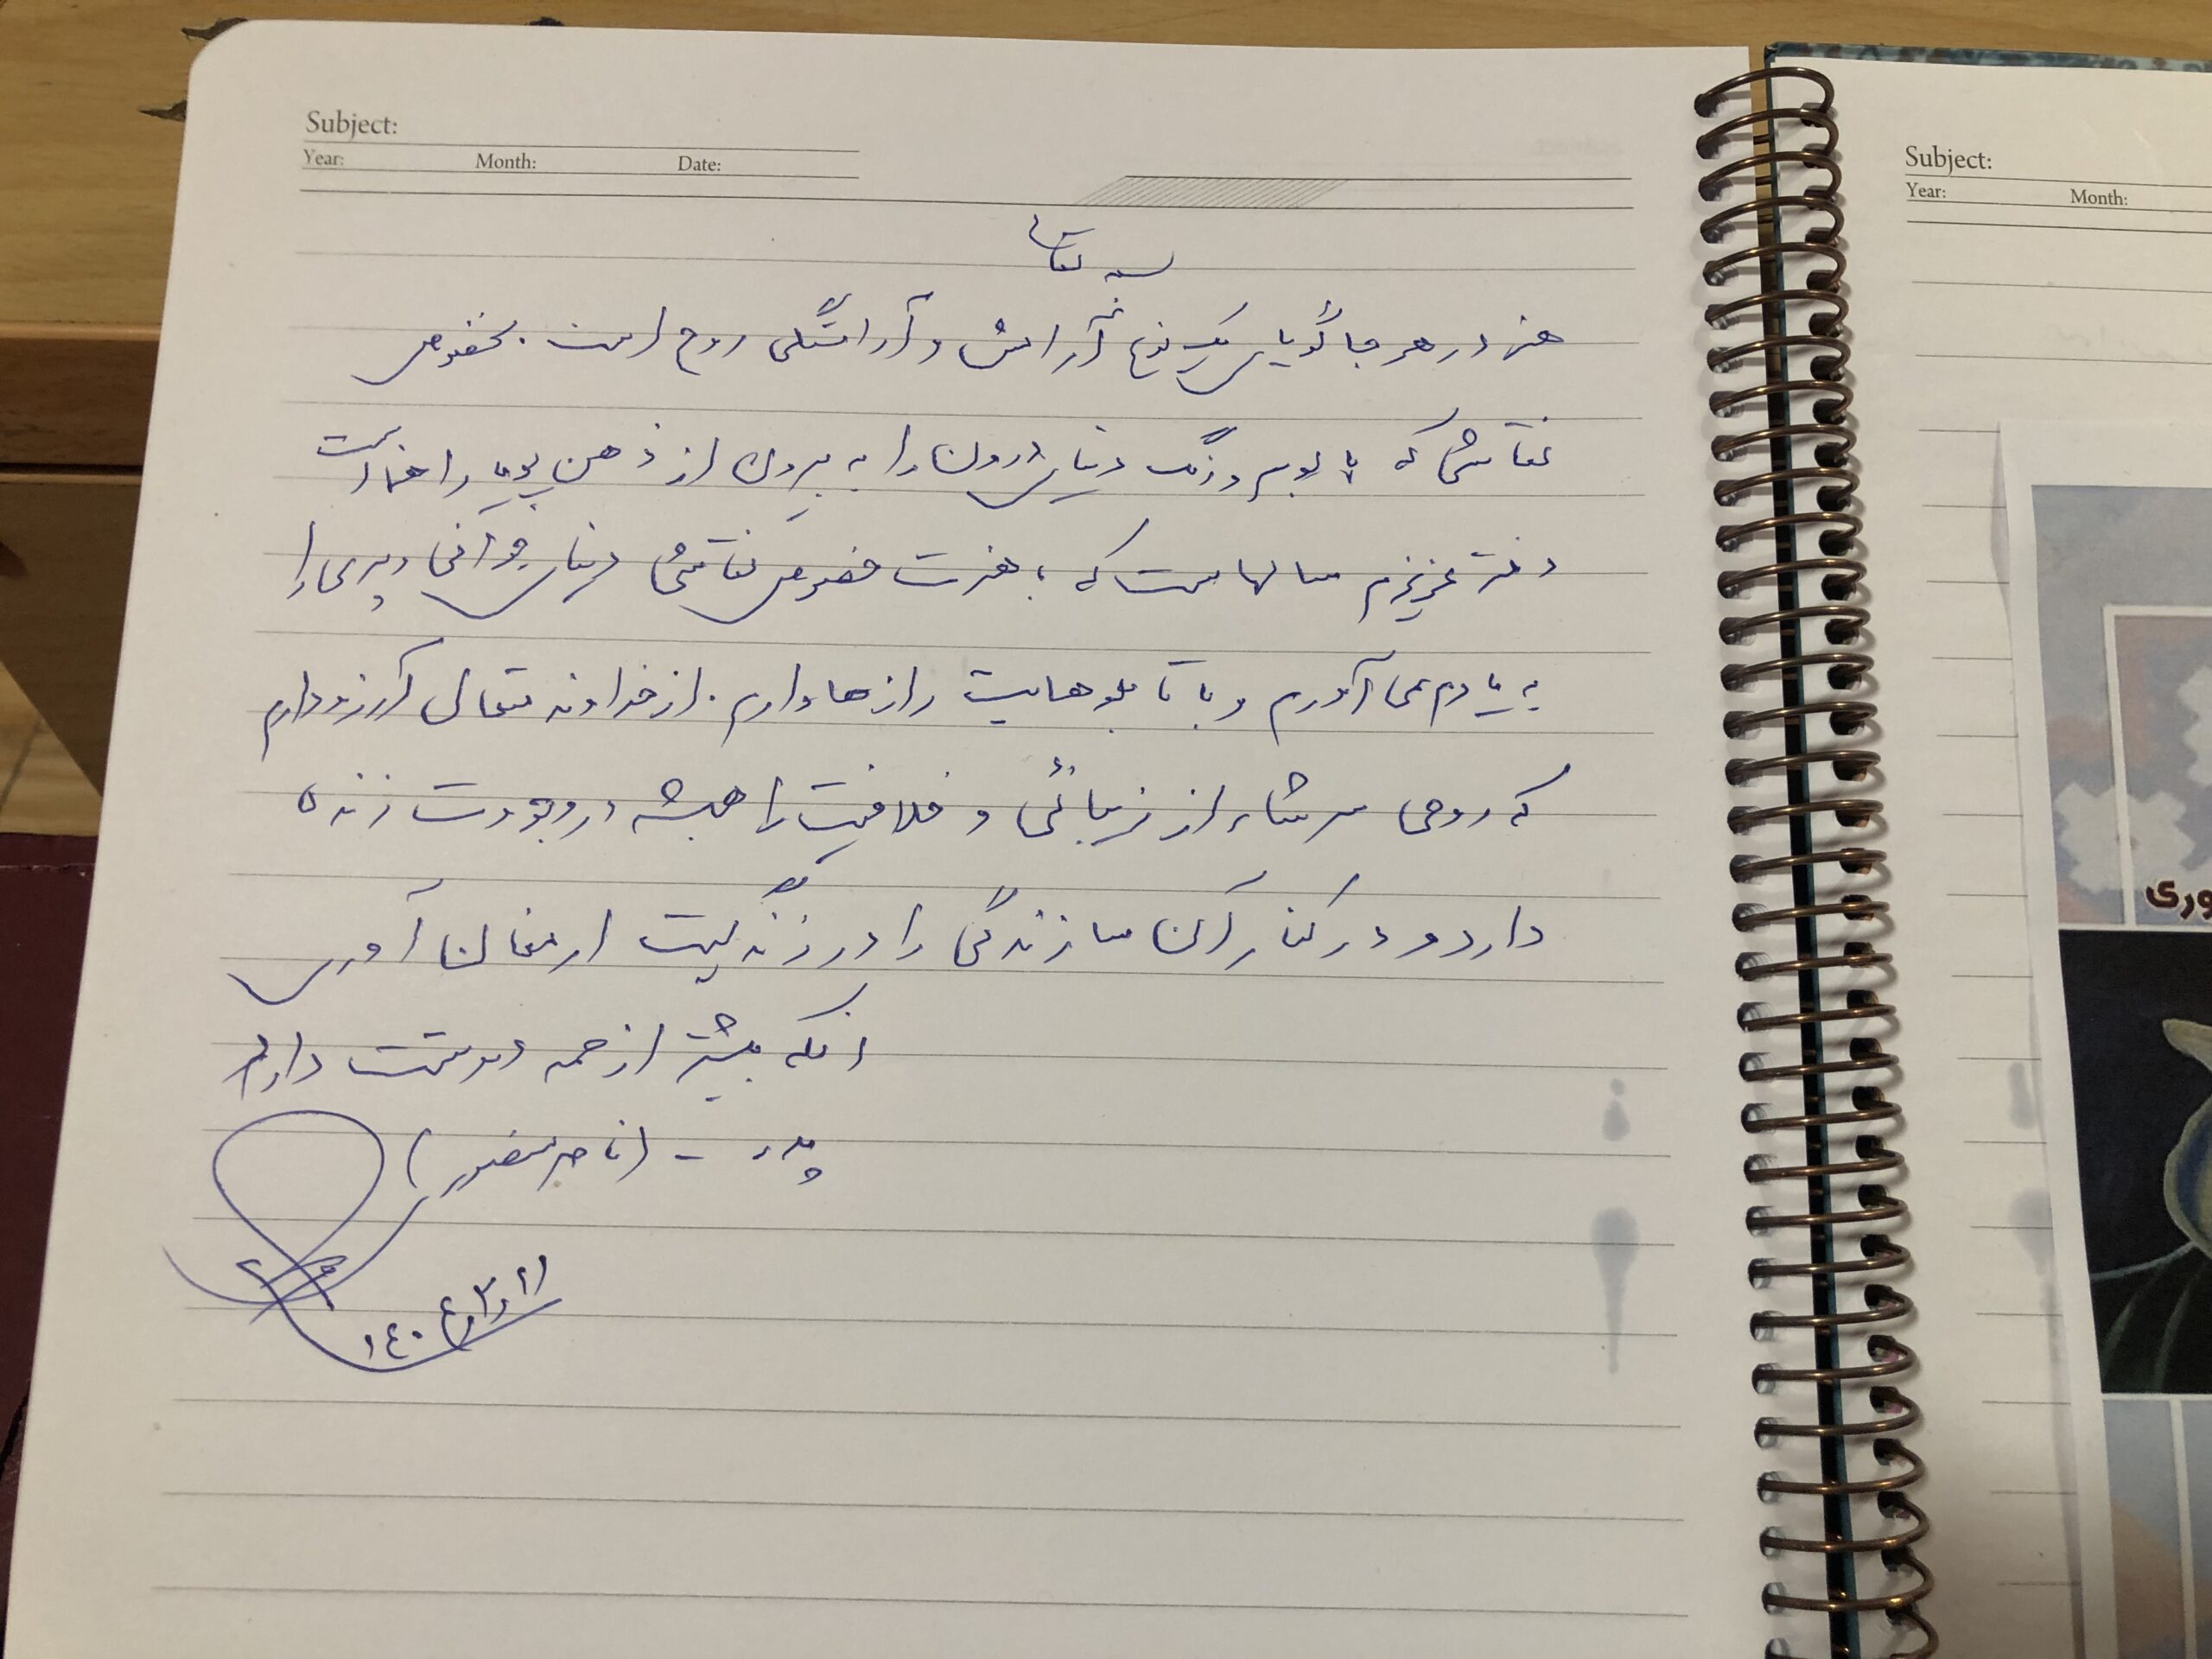 Subject:
Year: Month: Date:
بسمه تعالی
هنر در هر جا گویای یک نوع آرامش و آراستگی روح است. بخصوص
نقاشی که با بوم و رنگ دنیای درون را به بیرون از ذهن پویا راهنماست
دختر عزیزم سالهاست که با هنرت خصوص نقاشی دنیای جوانی و پیری را
به یادم می آورم و با تابلوهایت رازها دارم. از خداوند متعال آرزو دارم
که روحی سرشار از زیبائی و خلاقیت را همیشه در وجودت زنده
دارد و در کنار آن سازندگی را در زندگیت ارمغان آوری
آنکه بیشتر از همه دوستت دارم
پدر - (ناصر منصوری)
۱۴۰۴/۳/۲۱
Subject:
Year: Month:
وری